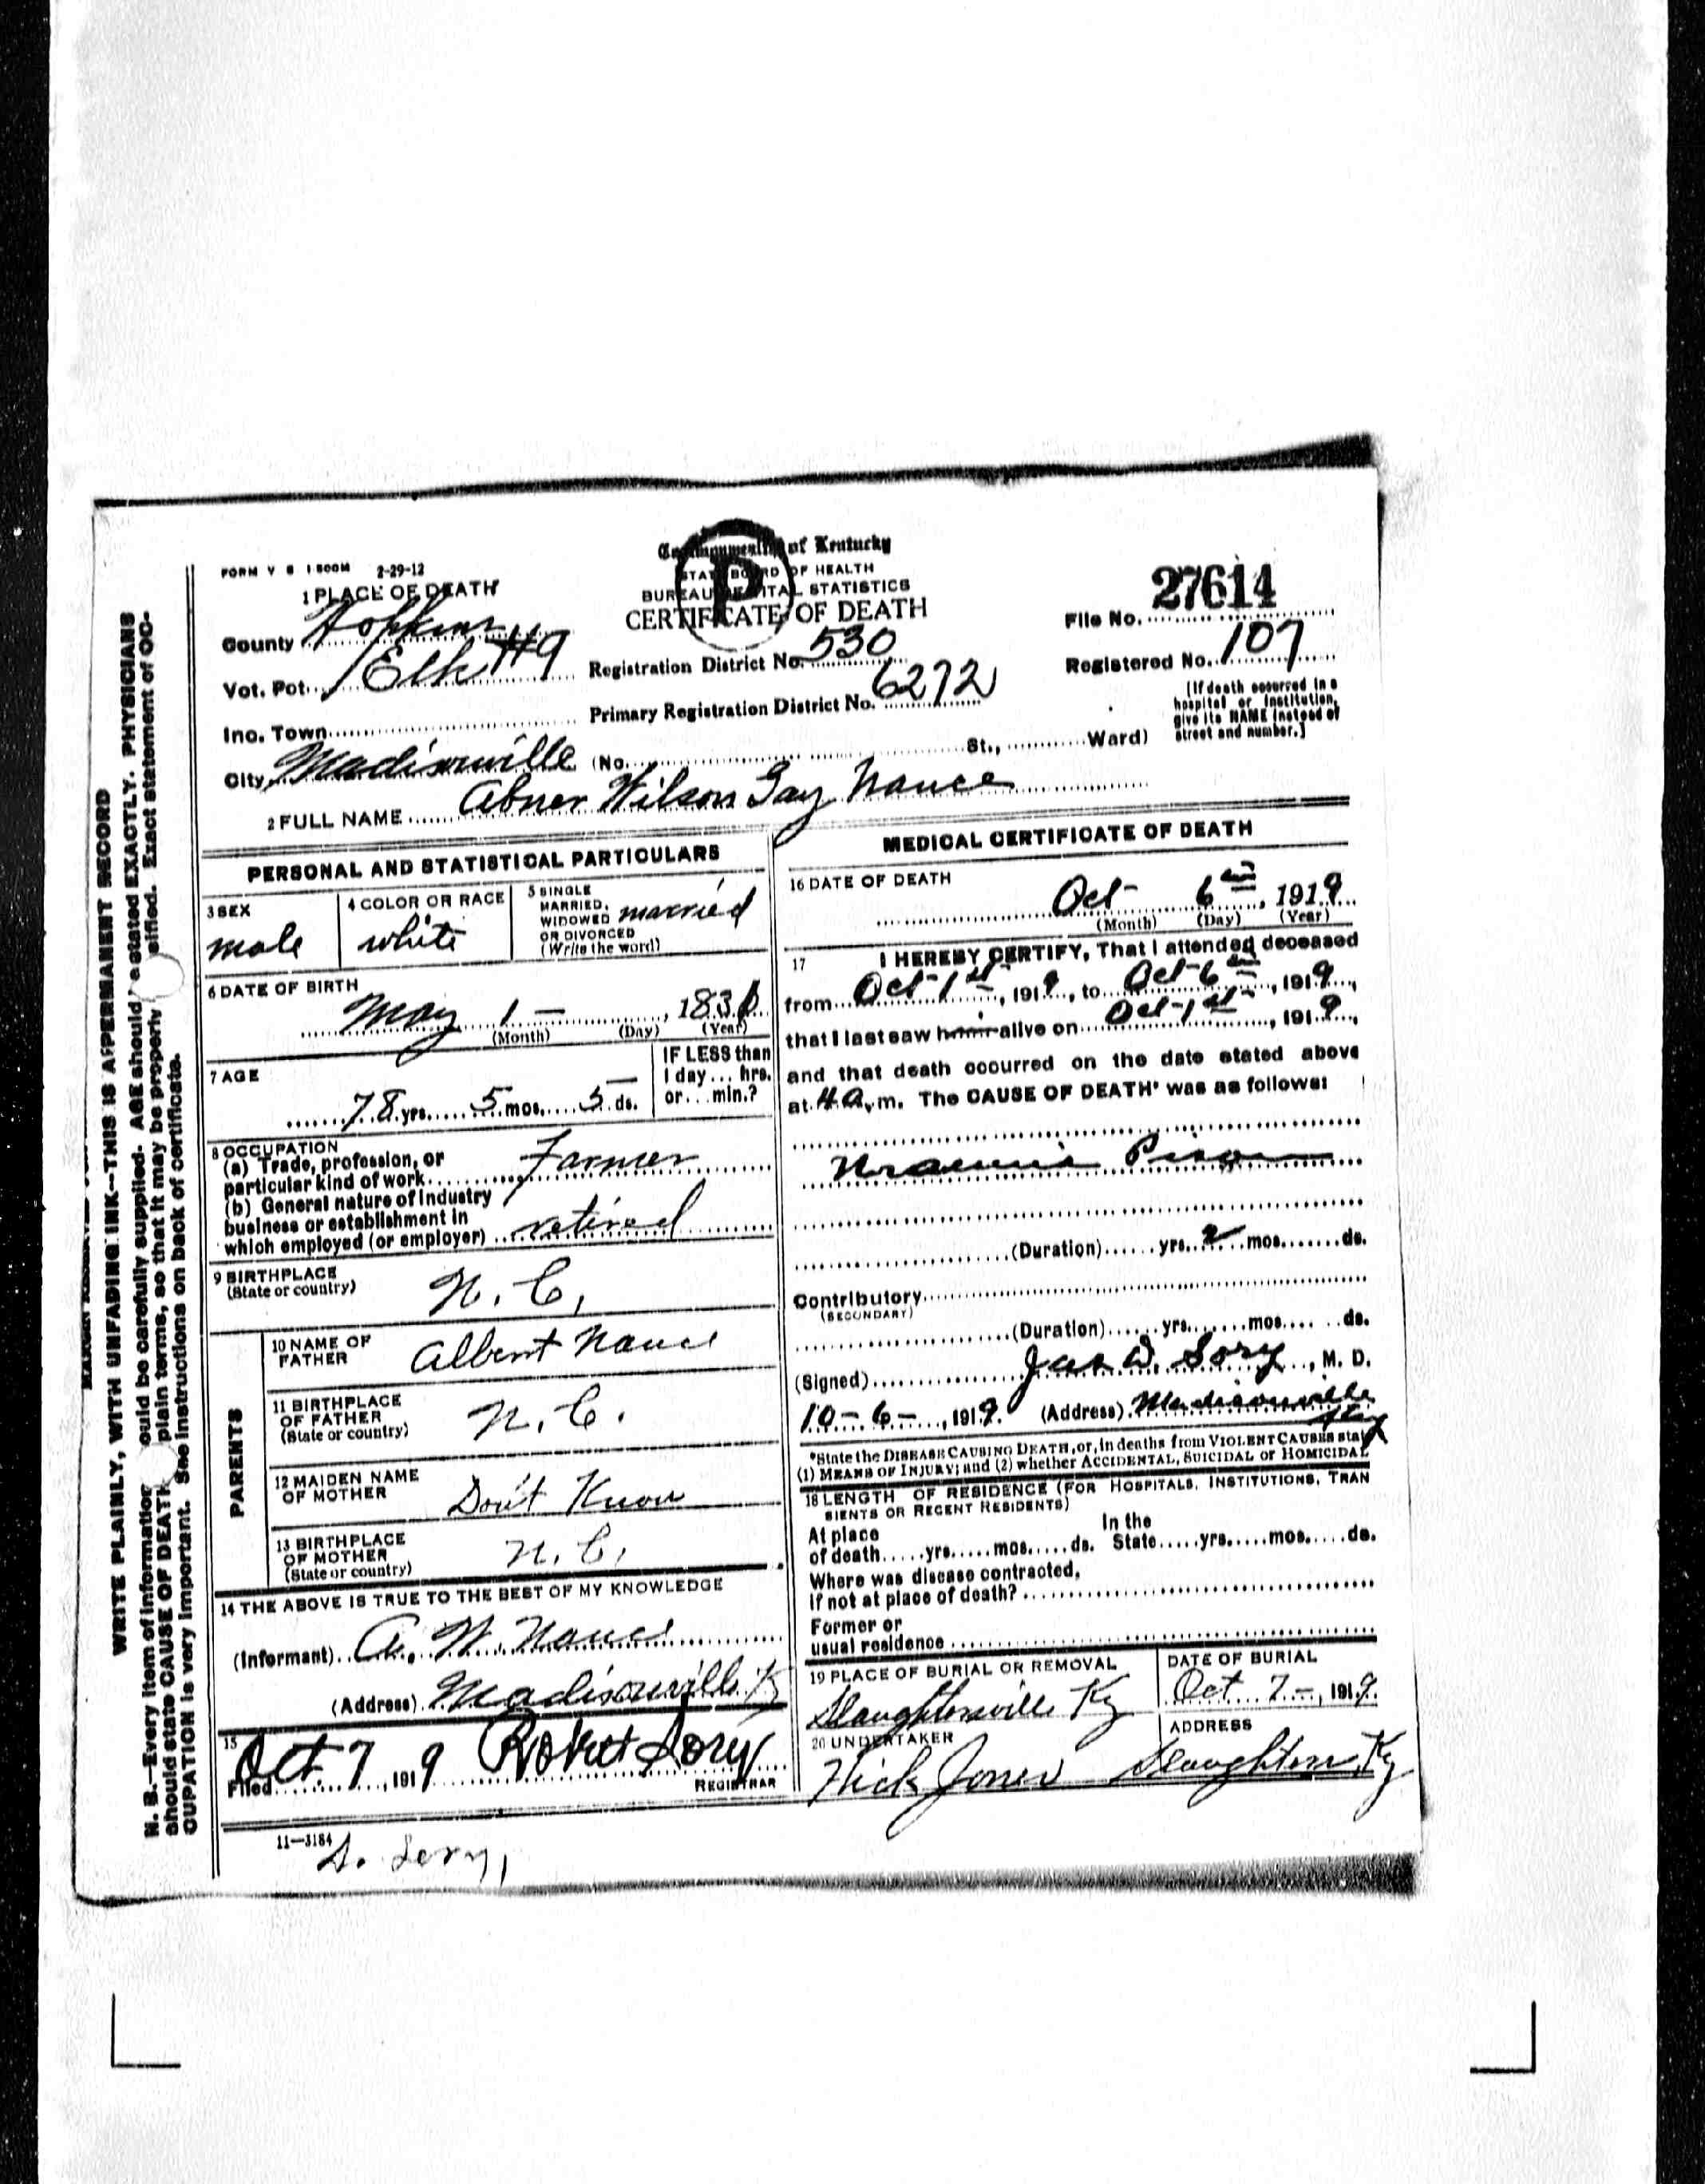 FORM V S 1 500M 2-29-12
Commonwealth of Kentucky
STATE BOARD OF HEALTH
BUREAU OF VITAL STATISTICS
CERTIFICATE OF DEATH
P
1 PLACE OF DEATH
County Hopkins
Vot. Pct. Elk #9
Inc. Town
City Madisonville (No. St., Ward)
Registration District No. 530
Primary Registration District No. 6272
File No. 27614
Registered No. 107
[If death occurred in a
hospital or institution,
give its NAME instead of
street and number.]
2 FULL NAME Abner Wilson Gay Nance
PERSONAL AND STATISTICAL PARTICULARS
3 SEX
male
4 COLOR OR RACE
white
5 SINGLE
MARRIED,
WIDOWED
OR DIVORCED
(Write the word)
married
6 DATE OF BIRTH
May 1 — , 183
(Month) (Day) (Year)
7 AGE
78 yrs. 5 mos. 5 ds.
IF LESS than
1 day ... hrs.
or ... min.?
8 OCCUPATION
(a) Trade, profession, or
particular kind of work Farmer
(b) General nature of industry
business or establishment in
which employed (or employer) retired
9 BIRTHPLACE
(State or country) N. C.
PARENTS
10 NAME OF
FATHER Albert Nance
11 BIRTHPLACE
OF FATHER
(State or country) N. C.
12 MAIDEN NAME
OF MOTHER Don't Know
13 BIRTHPLACE
OF MOTHER
(State or country) N. C.
14 THE ABOVE IS TRUE TO THE BEST OF MY KNOWLEDGE
(Informant) A. W. Nance
(Address) Madisonville Ky
15
Filed Oct. 7, 1919 Robert Sory
REGISTRAR
11—3184
MEDICAL CERTIFICATE OF DEATH
16 DATE OF DEATH
Oct 6 , 1919
(Month) (Day) (Year)
17 I HEREBY CERTIFY, That I attended deceased
from Oct-1st, 1919, to Oct-6, 1919,
that I last saw him alive on Oct-1st, 1919,
and that death occurred on the date stated above
at 4 A. m. The CAUSE OF DEATH* was as follows:
Uraemic Poison
(Duration) yrs. 2 mos. ds.
Contributory
(SECONDARY)
(Duration) yrs. mos. ds.
(Signed) Jas D. Sory, M. D.
10-6-, 1919. (Address) Madisonville
Ky
*State the DISEASE CAUSING DEATH, or, in deaths from VIOLENT CAUSES state
(1) MEANS OF INJURY; and (2) whether ACCIDENTAL, SUICIDAL or HOMICIDAL
18 LENGTH OF RESIDENCE (FOR HOSPITALS, INSTITUTIONS, TRAN
SIENTS OR RECENT RESIDENTS)
At place In the
of death yrs. mos. ds. State yrs. mos. ds.
Where was disease contracted,
if not at place of death?
Former or
usual residence
19 PLACE OF BURIAL OR REMOVAL
Slaughtersville Ky
DATE OF BURIAL
Oct 7-, 1919.
20 UNDERTAKER
Hick Jones
ADDRESS
Slaughters Ky
WRITE PLAINLY, WITH UNFADING INK—THIS IS A PERMANENT RECORD
N. B.—Every item of information ould be carefully supplied. AGE should stated EXACTLY. PHYSICIANS
should state CAUSE OF DEATH plain terms, so that it may be properly sified. Exact statement of OC-
CUPATION is very important. See instructions on back of certificate.